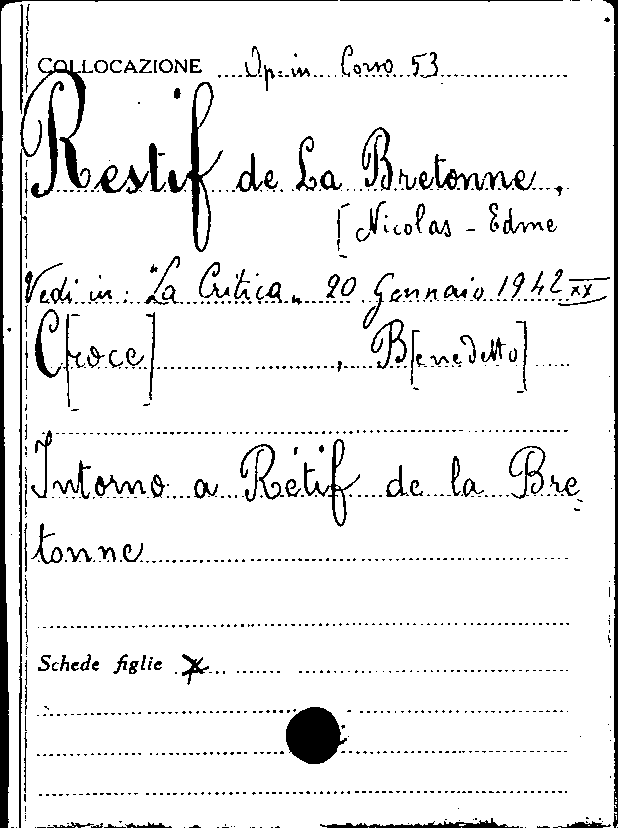 COLLOCAZIONE Op. in Corso 53
Restif de La Bretonne,
[Nicolas - Edme
Vedi in: "La Critica„ 20 Gennaio 1942 XX
C[roce], B[enedetto]
Intorno a Rétif de la Bre
tonne
Schede figlie X